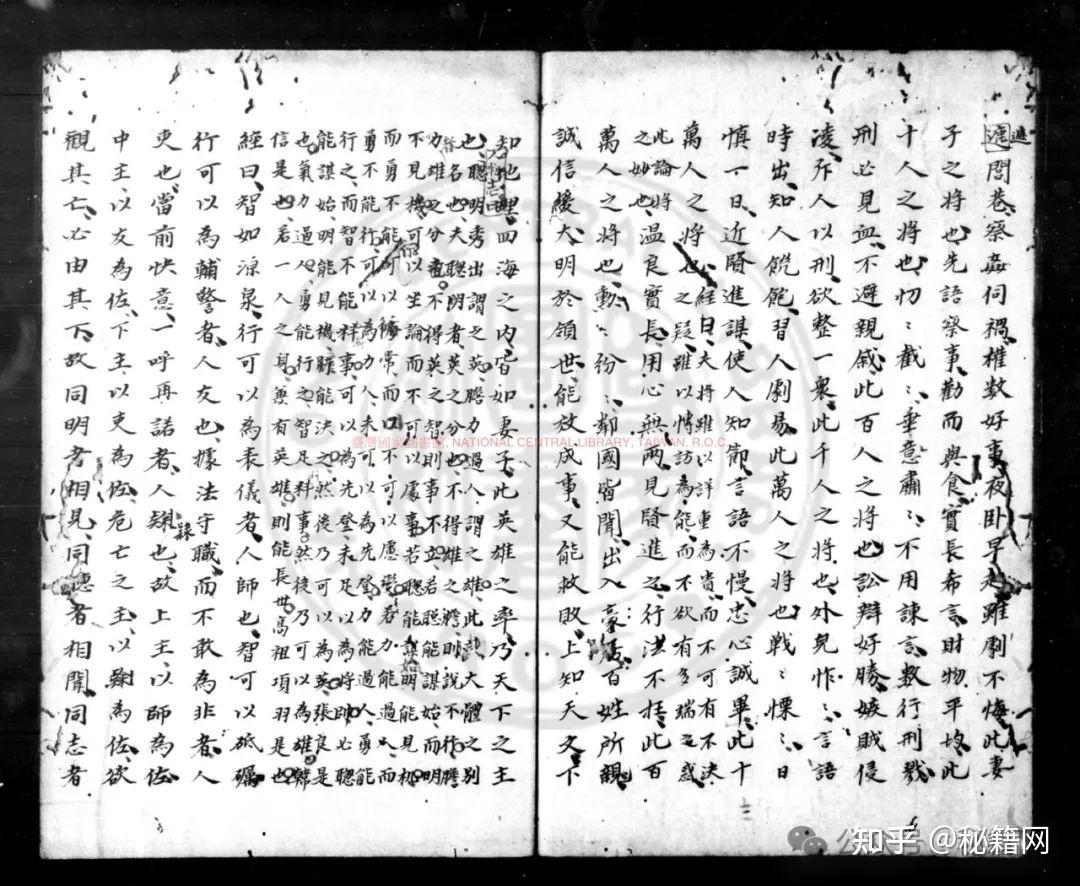 遁閭巷察姦伺禍權數好事夜卧早起雖劇不悔此妻
子之將也先語察事勸而與食實長希言財物平均此
十人之將也忉﹕截﹕垂意肅﹕不用諫言數行刑戮
刑必見血不避親戚此百人之將也訟辯好勝嫉賊侵
凌斥人以刑欲整一衆此千人之將也外皃怍﹕言語
時出知人饑飽習人劇易此萬人之將也戰﹕慄﹕日
慎一日近賢進謀使人知節言語不慢忠心誠畢此十
萬人之將也
經曰夫將雖以詳重為貴而不可有不決
之疑雖以博訪為能而不欲有多端之惑
此論將
之妙也
温良實長用心無兩見賢進之行法不枉此百
萬人之將也勳﹕紛﹕鄰國皆聞出入豪居百姓所親
誠信緩大明於領世能放成事又能救敗上知天文下
知地理四海之内皆如妻子此英雄之率乃天下之主
也
聰明秀出謂之英膽力過人謂之雄此大體之別
名也夫聰明者英之分也不得雄之膽則說不行膽
力雄之分也不得英之智則事不立若聰能謀始而明
不見機可以坐論而不可以處事若聰能謀始明能見機
而勇不能行可以循常而不可以慮變若力能過人而
勇不能行可以為力人未可以為先登力能過人勇能
行之而智不能料事可以為先登未足以為將帥必聰
能謀始明能見機膽能決之然後乃可以為英張良是
也氣力過人勇能行之智足料事然後乃可以為雄韓
信是也若一人之身兼有英雄則能長世高祖項羽是也
經曰智如源泉行可以為表儀者人師也智可以砥礪
行可以為輔警者人友也據法守職而不敢為非者人
吏也當前快意一呼再諾者人隸也故上主以師為佐
中主以友為佐下主以吏為佐危亡之主以隸為佐欲
觀其亡必由其下故同明者相見同聽者相聞同志者
臺灣國家圖書館, NATIONAL CENTRAL LIBRARY, TAIWAN, R.O.C.
知乎 @秘籍网